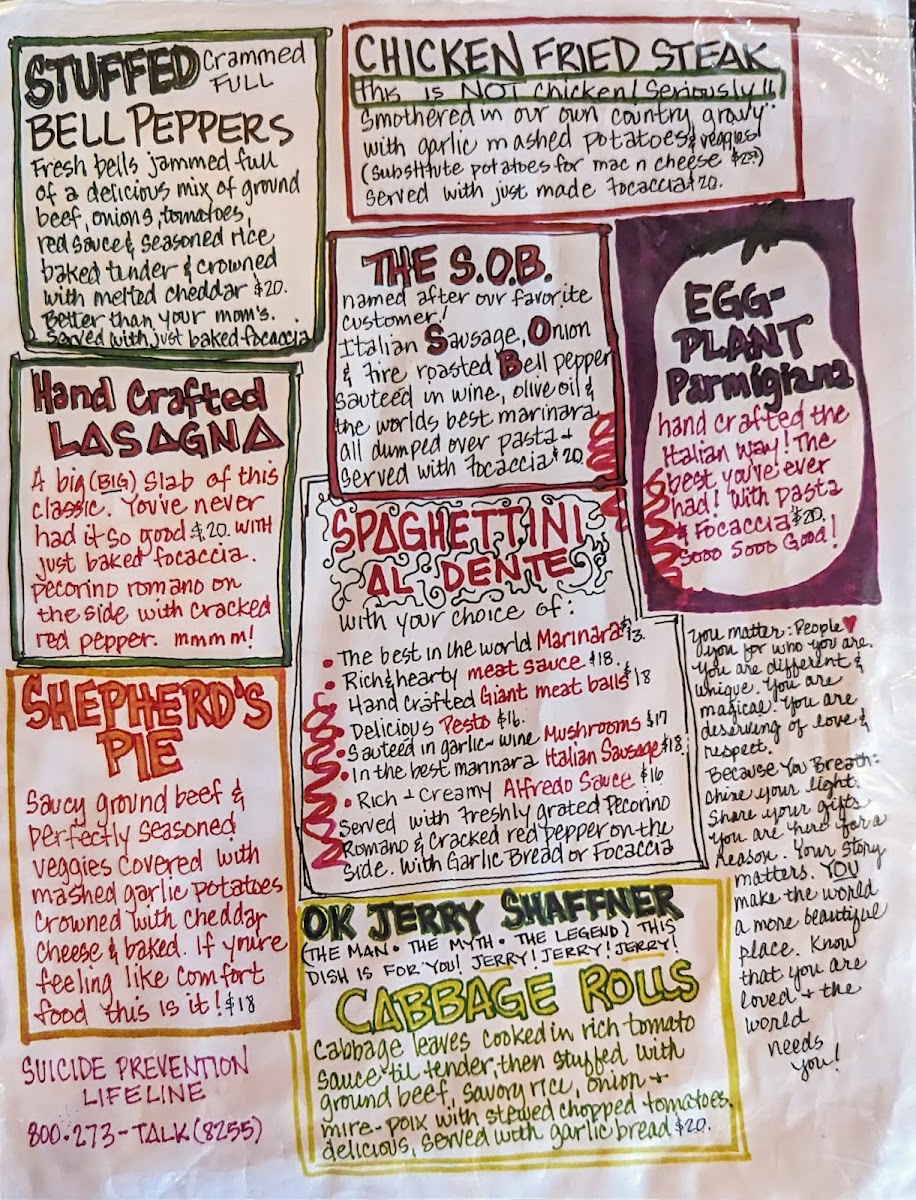 STUFFED Crammed
FULL
BELL PEPPERS
Fresh bells jammed full
of a delicious mix of ground
beef, onions, tomatoes,
red sauce & seasoned rice
baked tender & crowned
with melted cheddar $20.
Better than your mom's.
Served with just baked focaccia
CHICKEN FRIED STEAK
this is NOT chicken! Seriously!!
Smothered in our own country gravy
with garlic mashed potatoes & veggies
(substitute potatoes for mac n cheese $2.50)
served with just made focaccia $20.
THE S.O.B.
named after our favorite
customer!
Italian Sausage, Onion
& fire roasted Bell pepper
sauteed in wine, olive oil &
the worlds best marinara
all dumped over pasta +
served with focaccia $20
EGG-
PLANT
Parmigiana
hand crafted the
Italian way! The
best you've ever
had! With pasta
& focaccia $20.
Sooo Sooo Good!
Hand Crafted
LASAGNA
A big (BIG) slab of this
classic. You've never
had it so good $20. with
just baked focaccia.
pecorino romano on
the side with cracked
red pepper. mmmm!
SPAGHETTINI
AL DENTE
with your choice of:
• The best in the world Marinara $13.
• Rich & hearty meat sauce $18.
• Hand Crafted Giant meat balls $18
• Delicious Pesto $16.
• Sauteed in garlic-wine Mushrooms $17
• In the best marinara Italian Sausage $18.
• Rich + Creamy Alfredo Sauce $16
Served with freshly grated Pecorino
Romano & Cracked red pepper on the
side. With Garlic Bread or Focaccia
SHEPHERD'S
PIE
Saucy ground beef &
perfectly seasoned
veggies covered with
mashed garlic potatoes
crowned with cheddar
cheese & baked. If you're
feeling like comfort
food this is it! $18
OK JERRY SHAFFNER
(THE MAN • THE MYTH • THE LEGEND) THIS
DISH IS FOR YOU! JERRY! JERRY! JERRY!
CABBAGE ROLLS
Cabbage leaves cooked in rich tomato
sauce 'til tender, then stuffed with
ground beef, savory rice, onion +
mire-poix with stewed chopped tomatoes.
delicious, served with garlic bread $20.
You matter: People ♥
you for who you are.
You are different &
unique. You are
magical. You are
deserving of love &
respect.
Because You Breath:
Shine your light.
Share your gifts
You are here for a
reason. Your story
matters. YOU
make the world
a more beautiful
place. Know
that you are
loved + the
world
needs
you!
SUICIDE PREVENTION
LIFELINE
800•273-TALK (8255)